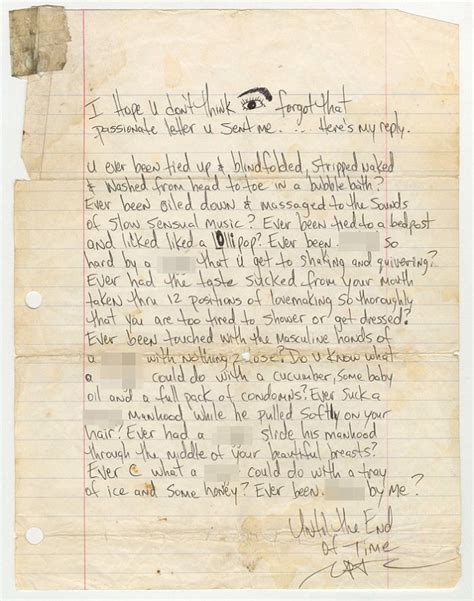 I Hope u don't think forgot that
passionate letter u sent me. . . . Here's my reply.
u ever been tied up & blindfolded, stripped naked
& washed from head to toe in a bubble bath?
Ever been oiled down & massaged to the sounds
of slow sensual music? Ever been tied to a bedpost
and licked liked a Lollipop? Ever been so
hard by a that u get to shaking and quivering?
Ever had the taste sucked from your mouth
taken thru 12 positions of lovemaking so thoroughly
that you are too tired to shower or get dressed?
Ever been touched with the Masculine hands of
a with nothing 2 lose? Do u know what
a could do with a cucumber, some baby
oil and a full pack of condomns? Ever suck a
Manhood while he pulled softly on your
hair? Ever had a slide his manhood
through the middle of your beautiful breasts?
Ever C what a could do with a tray
of ice and some honey? Ever been by me?
Until the End
of Time